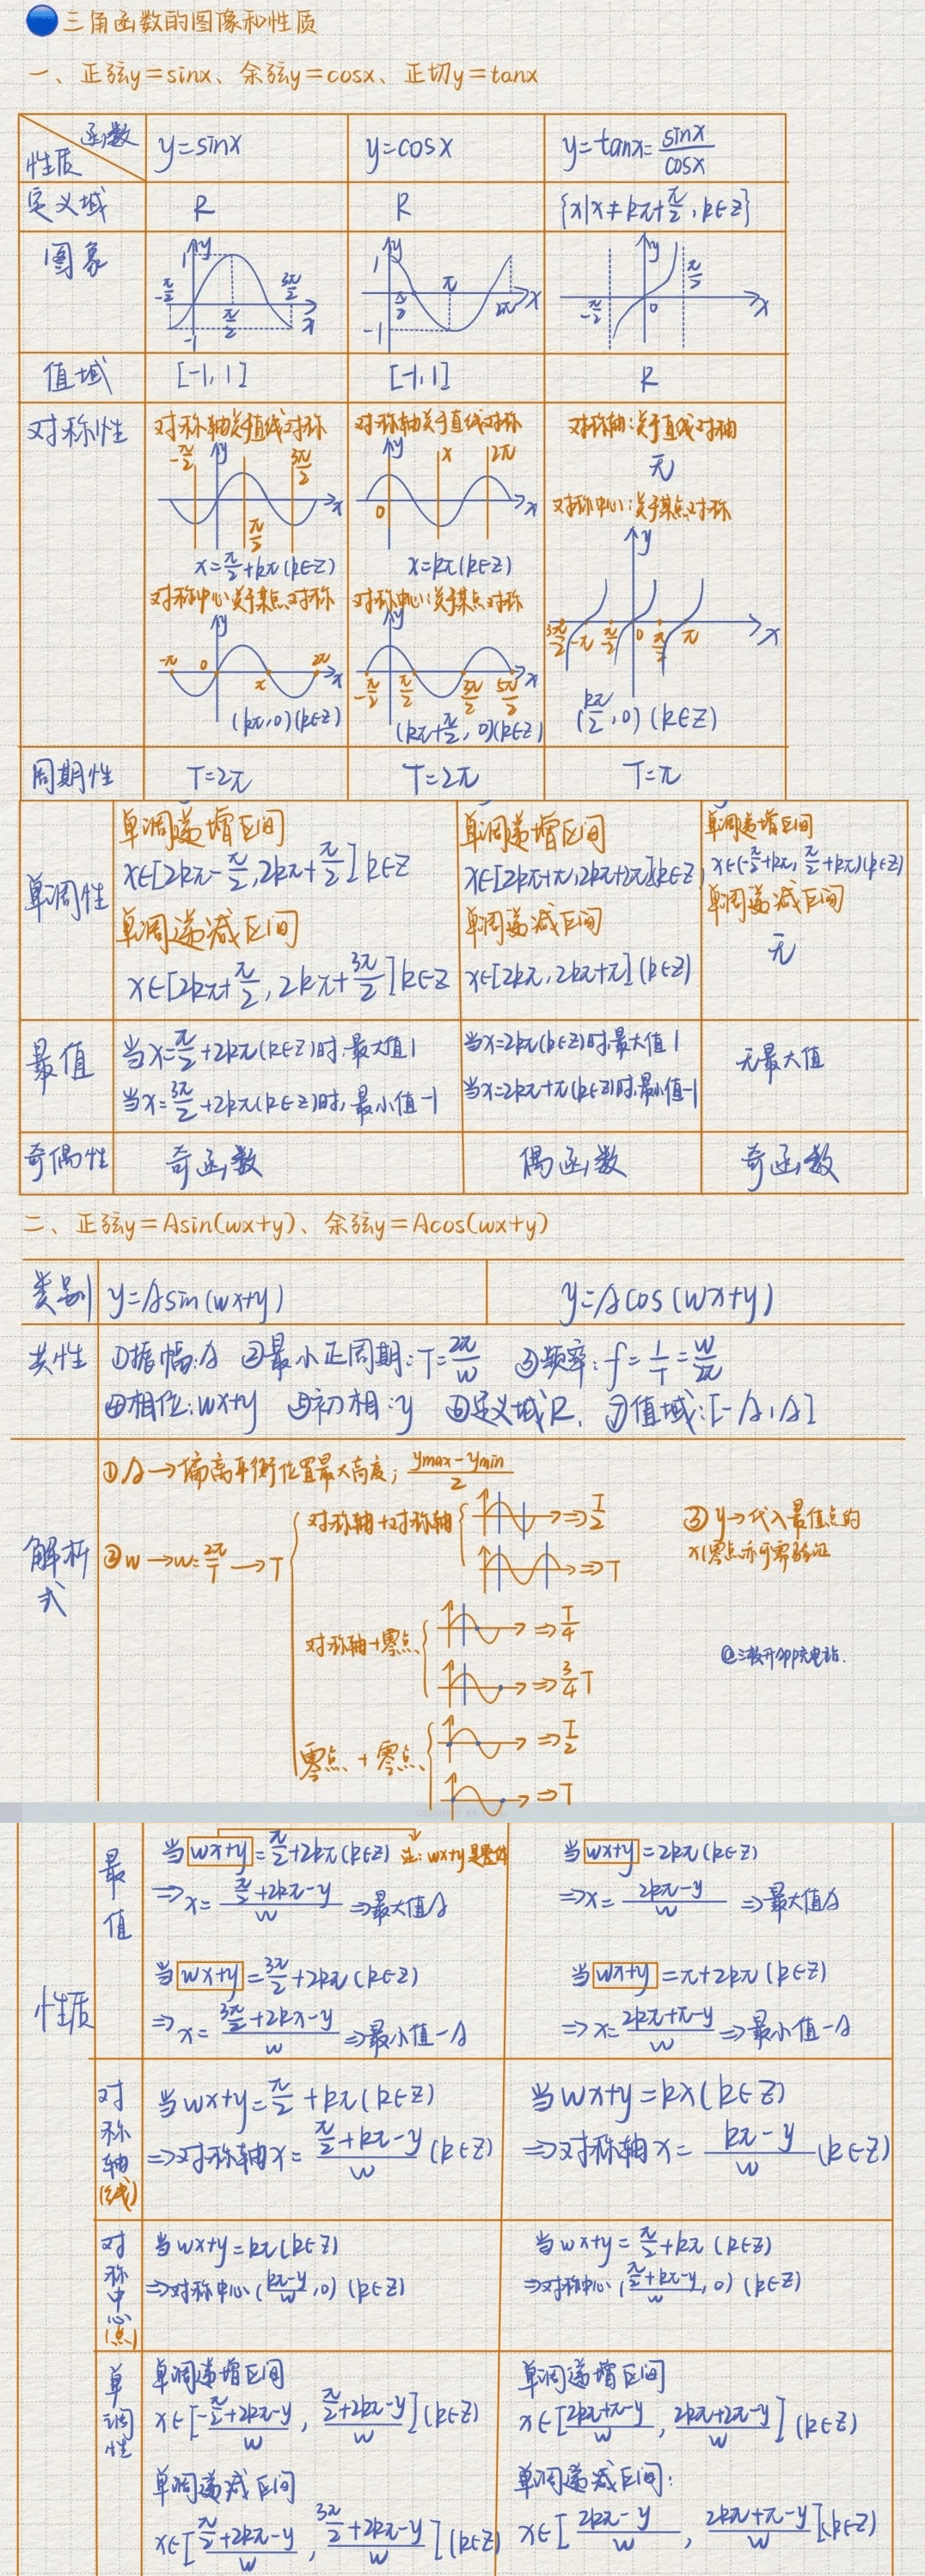 三角函数的图像和性质
一、正弦y=sinx、余弦y=cosx、正切y=tanx
函数
性质
y=sinx
y=cosx
y=tanx=sinx/cosx
定义域
R
R
{x|x≠kπ+π/2,k∈Z}
图象
1 y
-π/2 π/2 3π/2 x
-1
1 y
π/2 π 2π x
-1
y
-π/2 0 π/2 x
值域
[-1,1]
[-1,1]
R
对称性
对称轴关于直线对称
-π/2 y 3π/2
x
π/2
x=π/2+kπ(k∈Z)
对称中心:关于某点对称
y
-π 0 π 2π x
(kπ,0)(k∈Z)
对称轴关于直线对称
y π 2π
0 x
x=kπ(k∈Z)
对称中心:关于某点对称
y
-π/2 π/2 3π/2 5π/2 x
(kπ+π/2,0)(k∈Z)
对称轴:关于直线对轴
无
对称中心:关于某点对称
y
3π/2 -π π/2 0 π/2 π x
(kπ/2,0)(k∈Z)
周期性
T=2π
T=2π
T=π
单调性
单调递增区间
x∈[2kπ-π/2,2kπ+π/2]k∈Z
单调递减区间
x∈[2kπ+π/2,2kπ+3π/2]k∈Z
单调递增区间
x∈[2kπ+π,2kπ+2π]k∈Z
单调递减区间
x∈[2kπ,2kπ+π](k∈Z)
单调递增区间
x∈(-π/2+kπ,π/2+kπ)(k∈Z)
单调递减区间
无
最值
当x=π/2+2kπ(k∈Z)时,最大值1
当x=3π/2+2kπ(k∈Z)时,最小值-1
当x=2kπ(k∈Z)时,最大值1
当x=2kπ+π(k∈Z)时,最小值-1
无最大值
奇偶性
奇函数
偶函数
奇函数
二、正弦y=Asin(wx+y)、余弦y=Acos(wx+y)
类别
y=Asin(wx+y)
y=Acos(wx+y)
共性
①振幅:A ②最小正周期:T=2π/w ③频率:f=1/T=w/2π
④相位:wx+y ⑤初相:y ⑥定义域R. ⑦值域:[-A,A]
解析式
①A→偏离平衡位置最大高度; (ymax-ymin)/2
②w→w=2π/T→T
对称轴+对称轴
⇒T/2
⇒T
对称轴+零点
⇒T/4
⇒3/4T
零点+零点
⇒T/2
⇒T
③y→代入最值点的
x(零点亦可需验证
性质
最值
当wx+y=π/2+2kπ(k∈Z) 注:wx+y是整体
⇒x=(π/2+2kπ-y)/w⇒最大值A
当wx+y=3π/2+2kπ(k∈Z)
⇒x=(3π/2+2kπ-y)/w⇒最小值-A
当wx+y=2kπ(k∈Z)
⇒x=(2kπ-y)/w⇒最大值A
当wx+y=π+2kπ(k∈Z)
⇒x=(2kπ+π-y)/w⇒最小值-A
对称轴(线)
当wx+y=π/2+kπ(k∈Z)
⇒对称轴x=(π/2+kπ-y)/w(k∈Z)
当wx+y=kπ(k∈Z)
⇒对称轴x=(kπ-y)/w(k∈Z)
对称中心(点)
当wx+y=kπ(k∈Z)
⇒对称中心((kπ-y)/w,0)(k∈Z)
当wx+y=π/2+kπ(k∈Z)
⇒对称中心((π/2+kπ-y)/w,0)(k∈Z)
单调性
单调递增区间
x∈[(-π/2+2kπ-y)/w,(π/2+2kπ-y)/w](k∈Z)
单调递减区间
x∈[(π/2+2kπ-y)/w,(3π/2+2kπ-y)/w](k∈Z)
单调递增区间
x∈[(2kπ+π-y)/w,(2kπ+2π-y)/w](k∈Z)
单调递减区间:
x∈[(2kπ-y)/w,(2kπ+π-y)/w](k∈Z)